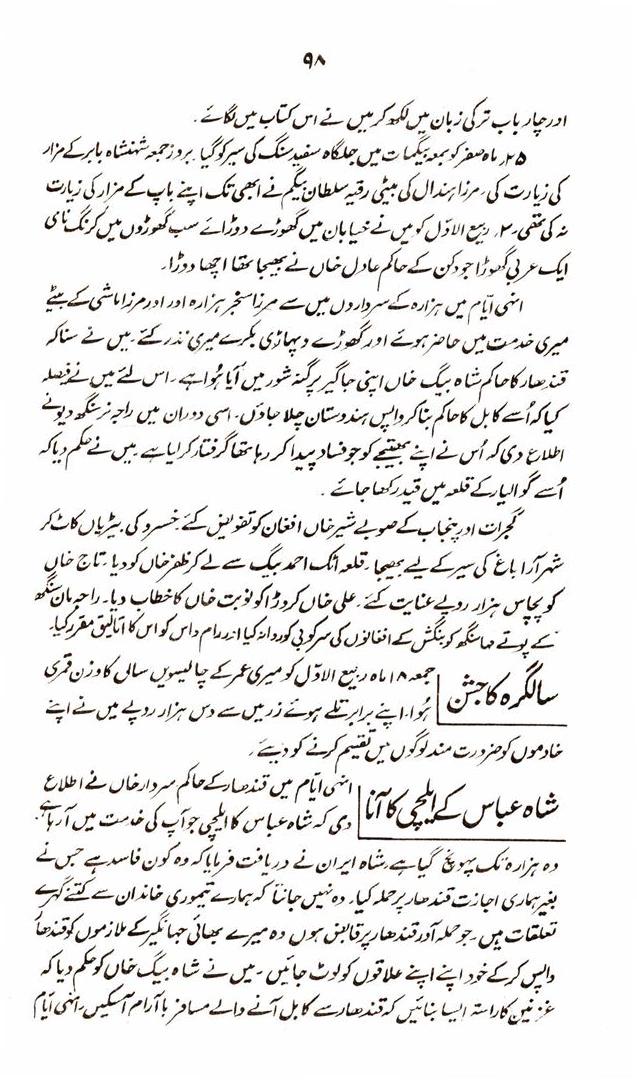 ۹۸
اور چار باب ترکی زبان میں لکھ کر میں نے اس کتاب میں لگائے۔
۲۵؍ ماہ صفر کو بمعہ بیگمات میں جلگاہ سفید سنگ کی سیر کو گیا۔ بروز جمعہ شہنشاہ بابر کے مزار
کی زیارت کی۔ مرزا ہندال کی بیٹی رقیہ سلطان بیگم نے ابھی تک اپنے باپ کے مزار کی زیارت
نہ کی تھی۔ ۲؍ ربیع الاوّل کو میں نے خیابان میں گھوڑے دوڑائے سب گھوڑوں میں کرنگ نامی
ایک عربی گھوڑا جو دکن کے حاکم عادل خاں نے بھیجا تھا اچھا دوڑا۔
انہی ایّام میں ہزارہ کے سرداروں میں سے مرزا سنجر ہزارہ اور اور مرزا ماشی کے بیٹے
میری خدمت میں حاضر ہوئے اور گھوڑے و پہاڑی بکرے میری نذر کئے۔ میں نے سنا کہ
قندھار کا حاکم شاہ بیگ خاں اپنی جاگیر پرگنہ شور میں آیا ہُوا ہے۔ اس لئے میں نے فیصلہ
کیا کہ اُسے کابل کا حاکم بنا کر واپس ہندوستان چلا جاؤں۔ اسی دوران میں راجہ نرسنگھ دیو نے
اطلاع دی کہ اُس نے اپنے بھتیجے کو جو فساد پیدا کر رہا تھا گرفتار کر لیا ہے۔ میں نے حکم دیا کہ
اُسے گوالیار کے قلعہ میں قید رکھا جائے۔
گجرات اور پنجاب کے صوبے شیر خاں افغان کو تفویض کئے۔ خسرو کی بیڑیاں کاٹ کر
شہر آرا باغ کی سیر کے لیے بھیجا۔ قلعہ اٹک احمد بیگ سے لے کر ظفر خاں کو دیا۔ تاج خاں
کو پچاس ہزار روپے عنایت کئے۔ علی خاں کروڑا کو نوبت خاں کا خطاب دیا۔ راجہ مان سنگھ
کے پوتے مہا سنگھ کو بنگش کے افغانوں کی سرکوبی کو روانہ کیا اور رام داس کو اس کا اتالیق مقرر کیا۔
سالگرہ کا جشن
جمعہ ۱۸ ماہ ربیع الاوّل کو میری عمر کے چالیسویں سالی کا وزن قمری
ہُوا۔ اپنے برابر تلے ہوئے زر میں سے دس ہزار روپے میں نے اپنے
خادموں کو ضرورت مند لوگوں میں تقسیم کرنے کو دیے۔
شاہ عباس کے ایلچی کا آنا
انہی ایّام میں قندھار کے حاکم سردار خاں نے اطلاع
دی کہ شاہ عباس کا ایلچی جو آپ کی خدمت میں آ رہا ہے
وہ ہزارہ تک پہونچ گیا ہے۔ شاہ ایران نے دریافت فرمایا کہ وہ کون فاسد ہے جس نے
بغیر ہماری اجازت قندھار پر حملہ کیا۔ وہ نہیں جانتا کہ ہمارے تیموری خاندان سے کتنے گہرے
تعلقات ہیں۔ جو حملہ آور قندھار پر قابض ہوں وہ میرے بھائی جہانگیر کے ملازموں کو قندھار
واپس کر کے خود اپنے اپنے علاقوں کو لوٹ جائیں۔ میں نے شاہ بیگ خاں کو حکم دیا کہ
غزنین کا راستہ ایسا بنائیں کہ قندھار سے کابل آنے والے مسافر با آرام آ سکیں۔ انہی ایّام